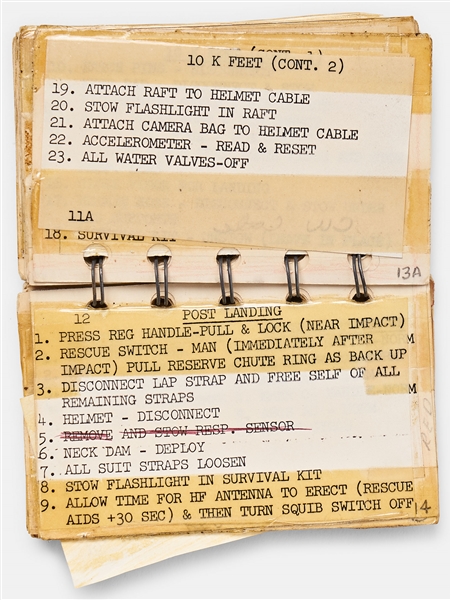 10 K FEET (CONT. 2)
19. ATTACH RAFT TO HELMET CABLE
20. STOW FLASHLIGHT IN RAFT
21. ATTACH CAMERA BAG TO HELMET CABLE
22. ACCELEROMETER - READ & RESET
23. ALL WATER VALVES-OFF
11A
18. SURVIVAL KIT
13A
12 POST LANDING
1. PRESS REG HANDLE-PULL & LOCK (NEAR IMPACT)
2. RESCUE SWITCH - MAN (IMMEDIATELY AFTER M
IMPACT) PULL RESERVE CHUTE RING AS BACK UP
3. DISCONNECT LAP STRAP AND FREE SELF OF ALL
REMAINING STRAPS M
4. HELMET - DISCONNECT
5. REMOVE AND STOW RESP. SENSOR
6. NECK DAM - DEPLOY
7. ALL SUIT STRAPS LOOSEN
8. STOW FLASHLIGHT IN SURVIVAL KIT
9. ALLOW TIME FOR HF ANTENNA TO ERECT (RESCUE
AIDS +30 SEC) & THEN TURN SQUIB SWITCH OFF
14